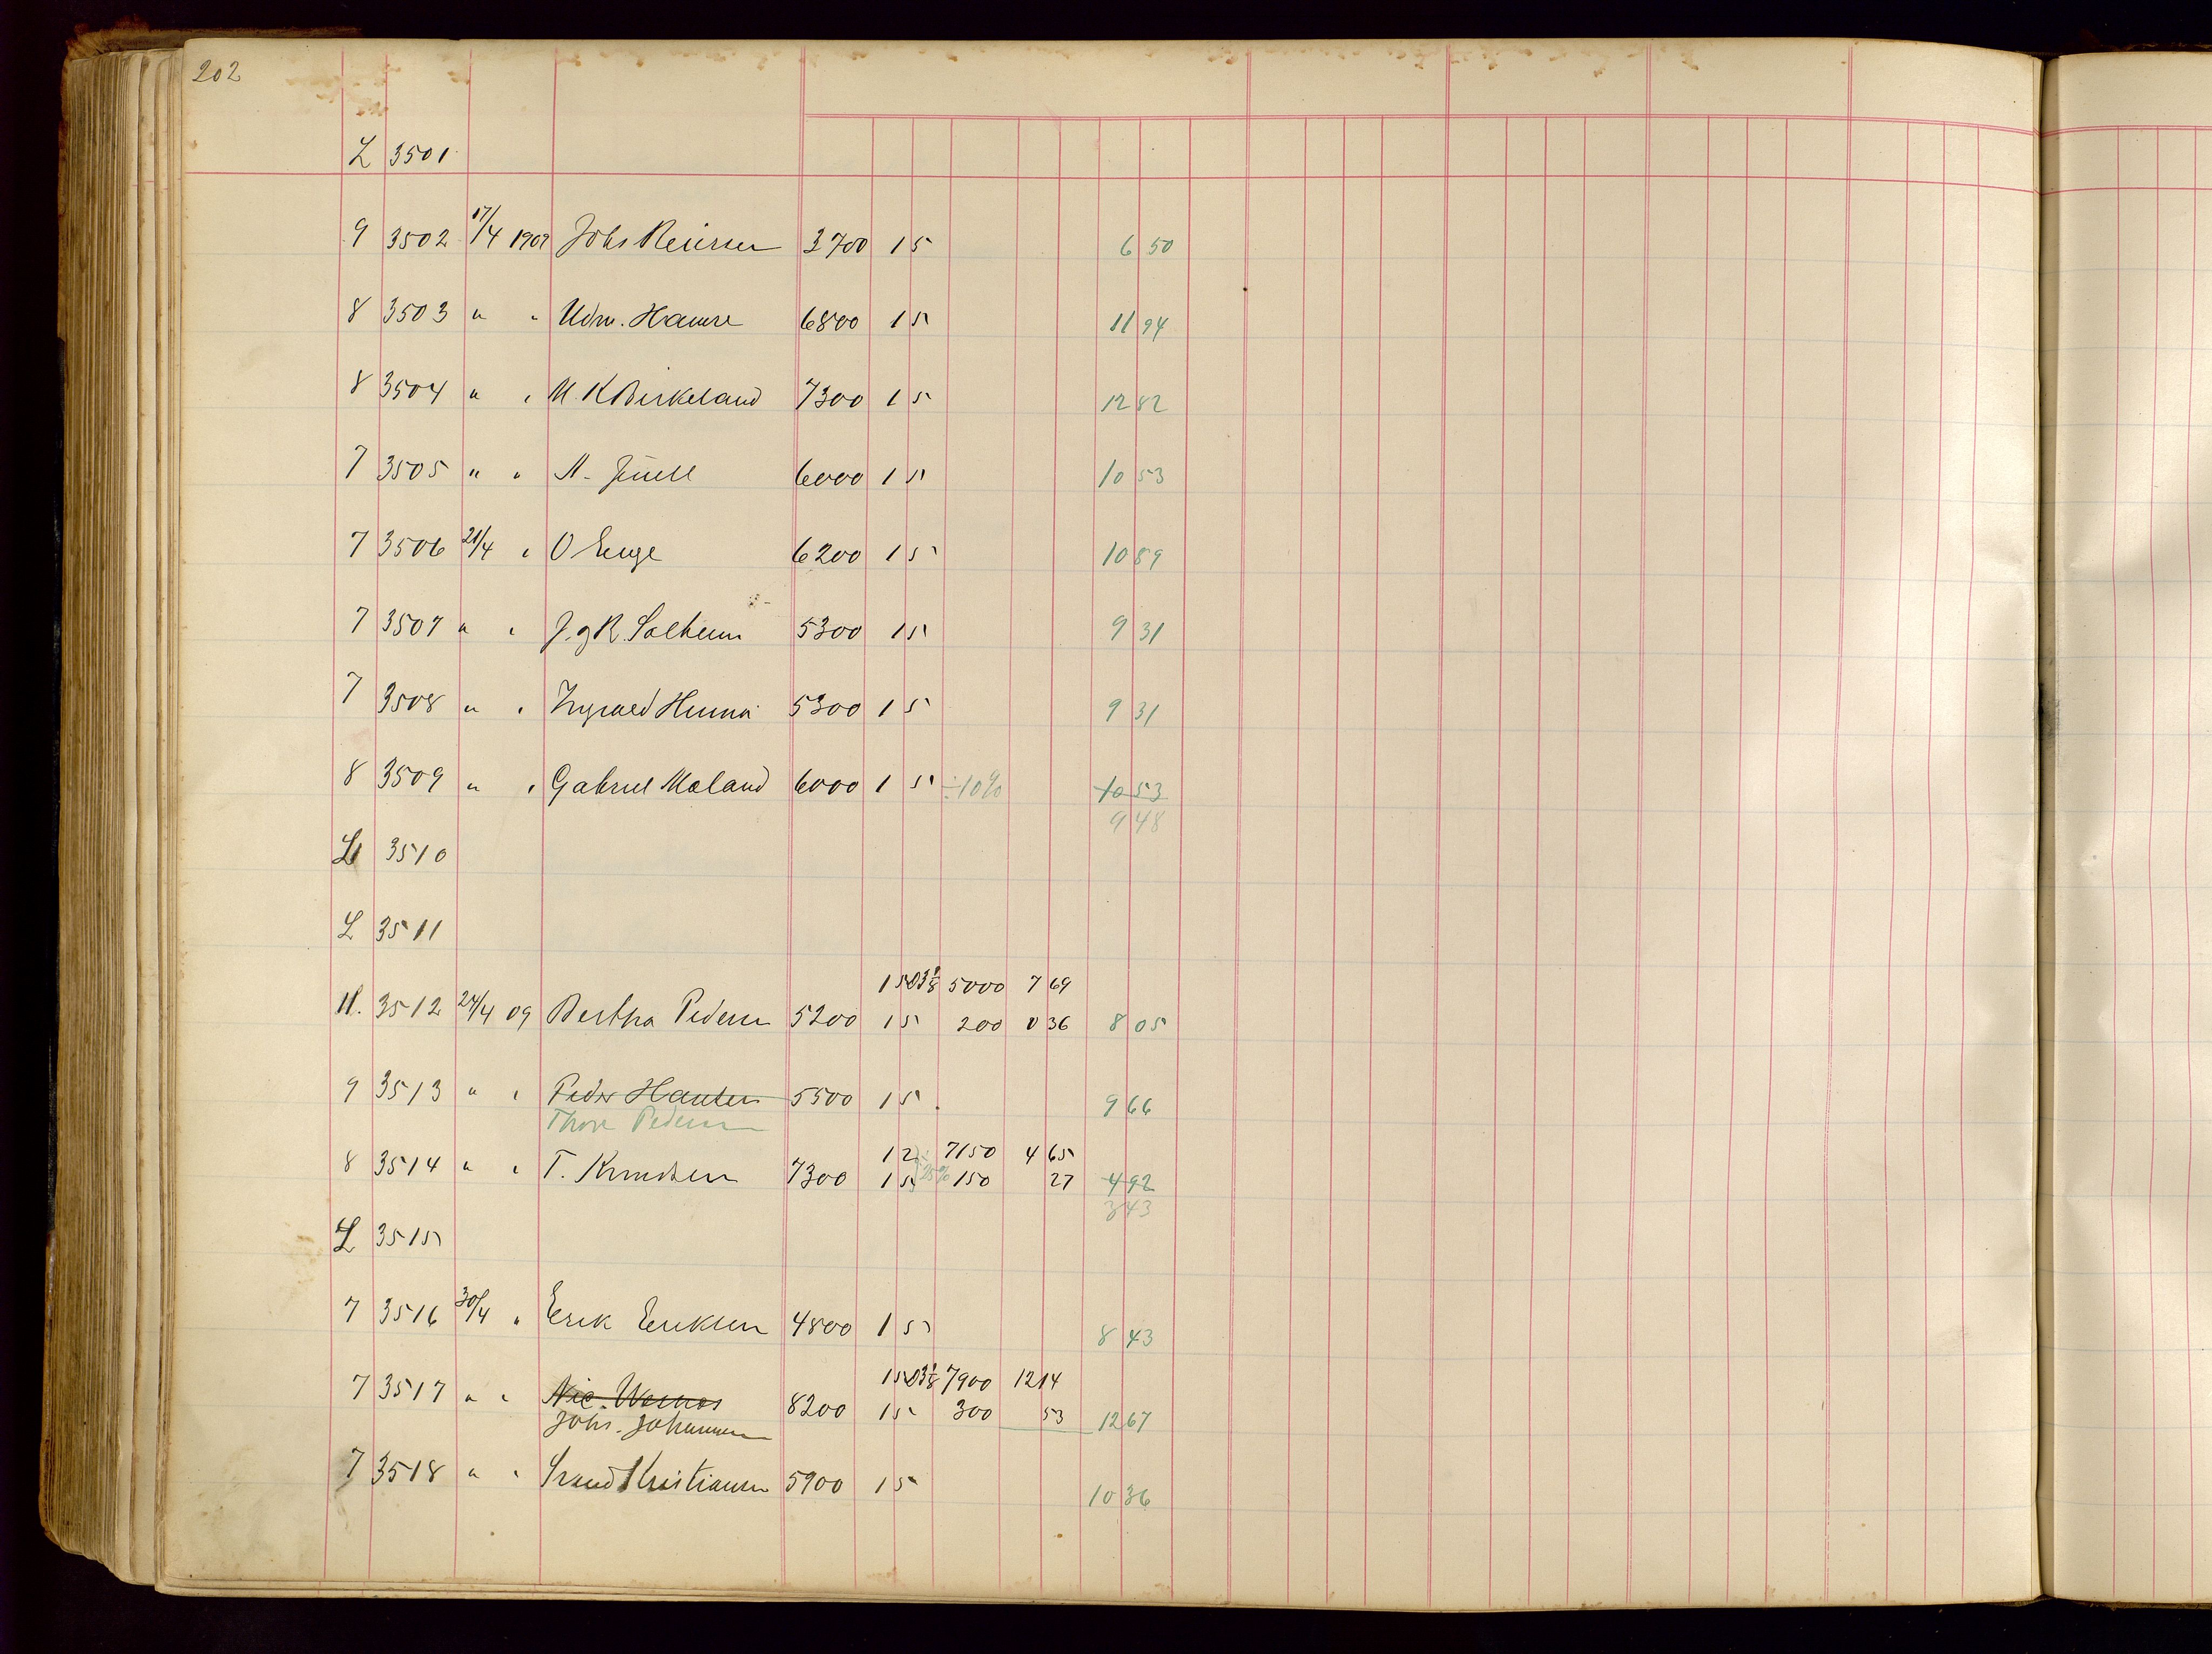 202
L 3501
9 3502 17/4 1909 Johs Reiersen 3700 15 6 50
8 3503 " " Udm. Hamre 6800 15 11 94
8 3504 " " M. K Birkeland 7300 15 12 82
7 3505 " " A. Juell 6000 15 10 53
7 3506 21/4 " O Enge 6200 15 10 89
7 3507 " " J. g R. Solheim 5300 15 9 31
7 3508 " " Ingvald 5300 15 9 31
8 3509 " " Gabriel Maland 6000 15 ÷10% 10 53
9 48
L 3510
L 3511
15 03 1/8 5000 7 69
11. 3512 24/4 09 Bertha Pedersen 5200 15 200 0 36 8 05
9 3513 " " Peder Hansen 5500 15 9 66
Thore Pedersen
12 7150 4 65
8 3514 " " T. Knudsen 7300 15 25% 150 27 4 92
3 43
L 3515
7 3516 30/4 " Erik Eriksen 4800 15 8 43
15 03 1/8 7900 12 14
7 3517 " " Nic. 8200 15 300 53 12 67
Johs. Johannesen
7 3518 " " Kristiansen 5900 15 10 36